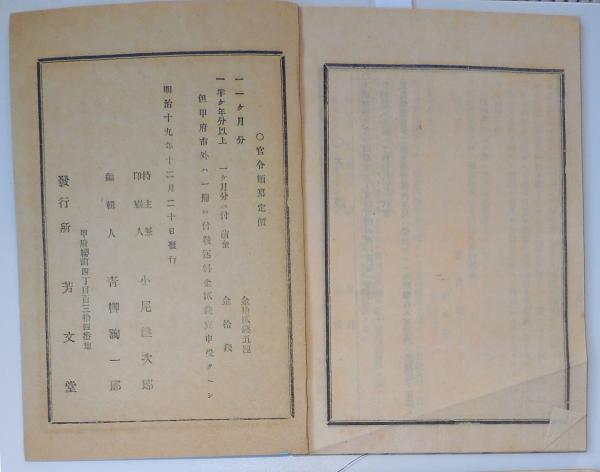 ○官令類纂定價
一一ヶ月分 金拾貳錢五厘
一半ヶ年分以上 一ヶ月分ニ付前金 金拾錢
但甲府市外ハ一冊ニ付遞送料金貳錢宛申受クヘシ
明治十九年十二月二十日發行
持主兼
印刷人 小尾 次郎
編輯人 青柳 一郎
甲府 町四丁目百三拾四番地
發行所 芳文堂